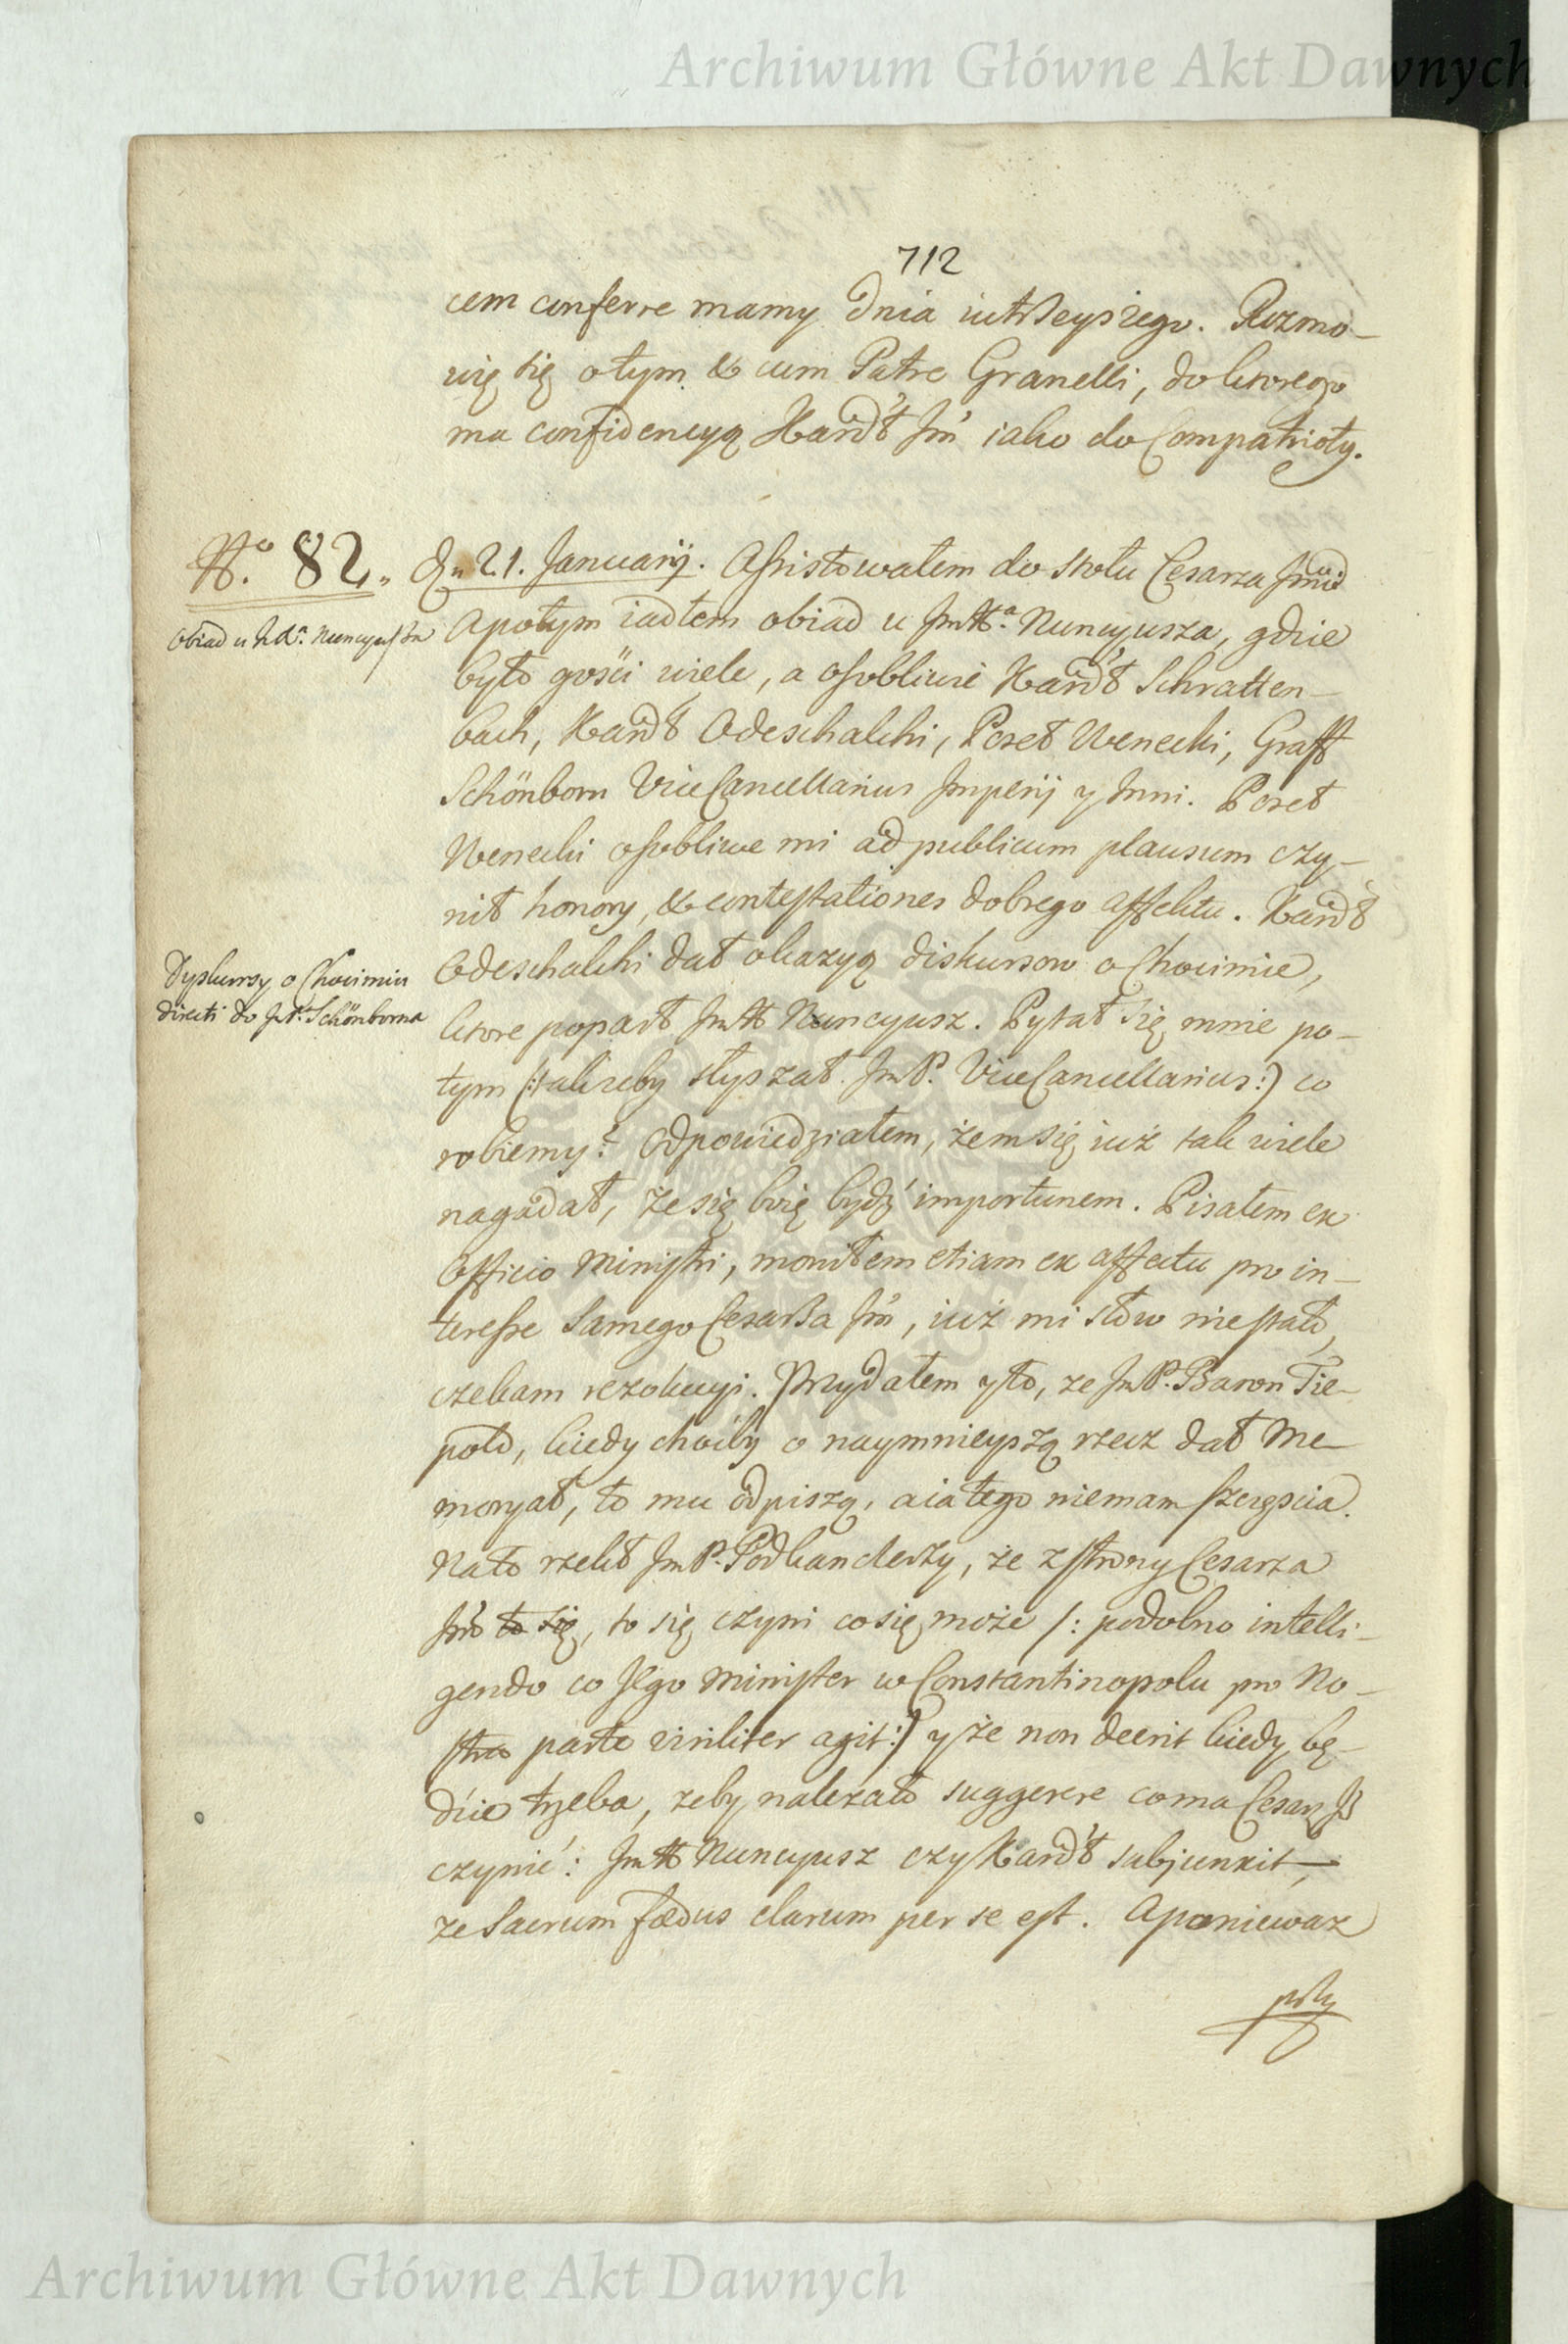 Archiwum Główne Akt Dawnych
712
cem conferre mamy dnia iutrzeyszego. Rozmo-
wię się otym & cum Patre Granelli, do ktorego
ma confidencyą Kardł Jm iako do Compatrioty.
N.o 82. D. 21. Januarij. Assistowałem do stołu Cesarza Jmci
Obiad u X. Nuncyusza
Apotym iadłem obiad u JmX.a Nuncyusza, gdzie
było gości wiele, a osobliwie Kardł Schratten-
bach, Kardł Odeschalchi, Poseł Wenecki, Graff
Schönborn ViceCancellarius Imperij y Inni. Poseł
Wenecki osobliwe mi ad publicum plausum czy-
nił honory, & contestationes dobrego affektu. Kardł
Dyskursy o Chocimiu
directi do JmP. Schönborna
Odeschalchi dał okazyą diskursow o Chocimie,
ktore poparł JmX Nuncyusz. Pytał się mnie po-
tym (: tak żeby słyszał JmP. ViceCancellarius :) co
robiemy? Odpowiedziałem, żem się iuż tak wiele
nagadał, że się boię bydź importunem. Pisałem ex
Officio Ministri, moniłem etiam ex affectu pro in-
teresse Samego Cesarza Jm, iuż mi słow niestało,
czekam rezolucyi. Przydałem y to, ze JmP. Baron Tie-
polo, kiedy choćby o naymnieyszą rzecz dał Me-
moryał, to mu odpiszą, a ia tego niemam szczęscia.
Nato rzekł JmP. Podkanclerzy, że z strony Cesarza
Jm to się, to się czyni co się może (: podobno intelli-
gendo co Jego Minister w Constantinopolu pro No-
stra parte viriliter agit :) y że non deerit kiedy bę-
dzie trzeba, zeby nalezało suggerere co ma Cesarz J
czynić: JmX Nuncyusz czy Kardł subjunxit,
ze Sacrum fœdus clarum per se est. Aponiewaz
Archiwum Główne Akt Dawnych